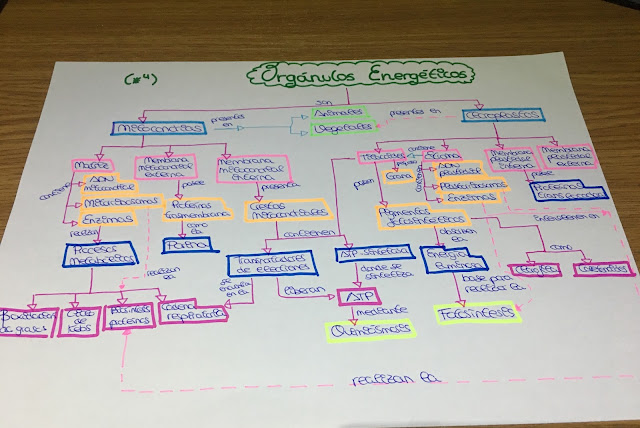 (#4)
Orgánulos Energéticos
son
Animales
Vegetales
presentes
en
presentes en
Mitocondrias
Cloroplastos
Matriz
Membrana
mitocondrial
externa
Membrana
mitocondrial
interna
Tilacoides
Estroma
Membrana
plastidial
interna
Membrana
plastidial
externa
contiene
ADN
mitocondrial
Mitorribosomas
Enzimas
posee
Proteínas
trasmembrana
presenta
Crestas
mitocondriales
poseen
Grana
contiene
ADN
plastidial
Plastorribosomas
Enzimas
posee
Proteínas
transportadoras
Pigmentos
fotosintéticos
realizan
como
la
Porina
contienen
absorben
la
como
Procesos
Metabólicos
realizan
la
Transportadores
de electrones
ATP-sintetasa
Energía
luminosa
Clorofila
Carotenoides
donde se
sintetiza
liberan
ATP
base para
realizar la
β-oxidación
de grasas
Ciclo
de
Krebs
Síntesis
proteínas
Cadena
respiratoria
mediante
Quimiósmosis
Fotosíntesis
realizan la